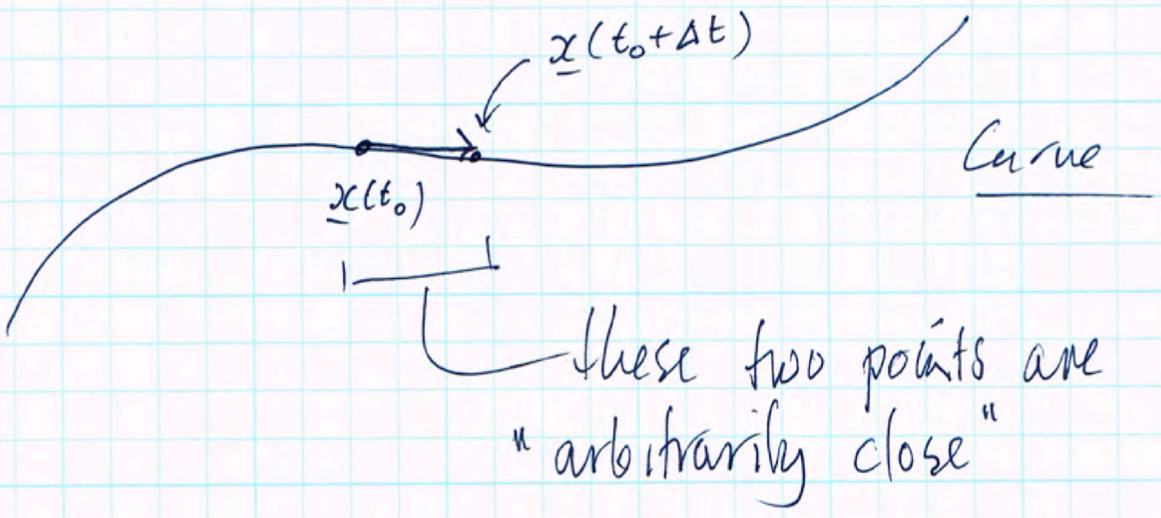 x(t₀+Δt)
x(t₀)
Curve
these two points are
"arbitrarily close"